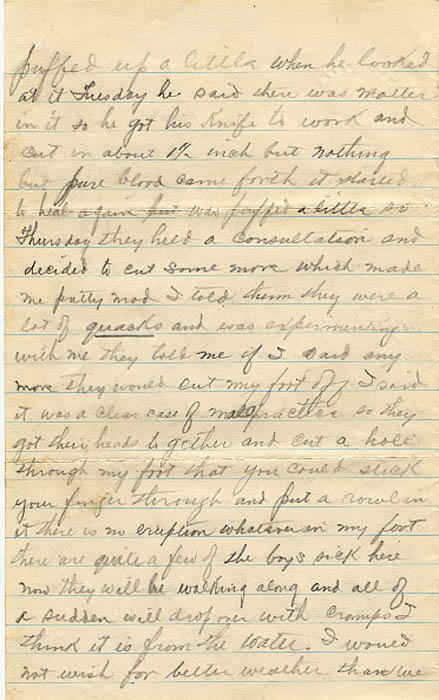 puffed up a little when he looked
at it Tuesday he said there was matter
in it so he got his Knife to work and
cut in about 1½ inch but nothing
but pure blood came forth it started
to heal again but was puffed a little so
Thursday they held a consultation and
decided to cut some more which made
me pretty mad I told them they were a
lot of quacks and was experimenting
with me they told me if I said any
more they would cut my foot off I said
it was a clear case of malepractice so they
got their heads to gether and cut a hole
through my foot that you could stick
your finger through and put a rowl in
it there is no eruption whatever in my foot
there are quite a few of the boys sick here
now they will be walking along and all of
a sudden will drop over with cramps I
think it is from the water. I would
not wish for better weather than we